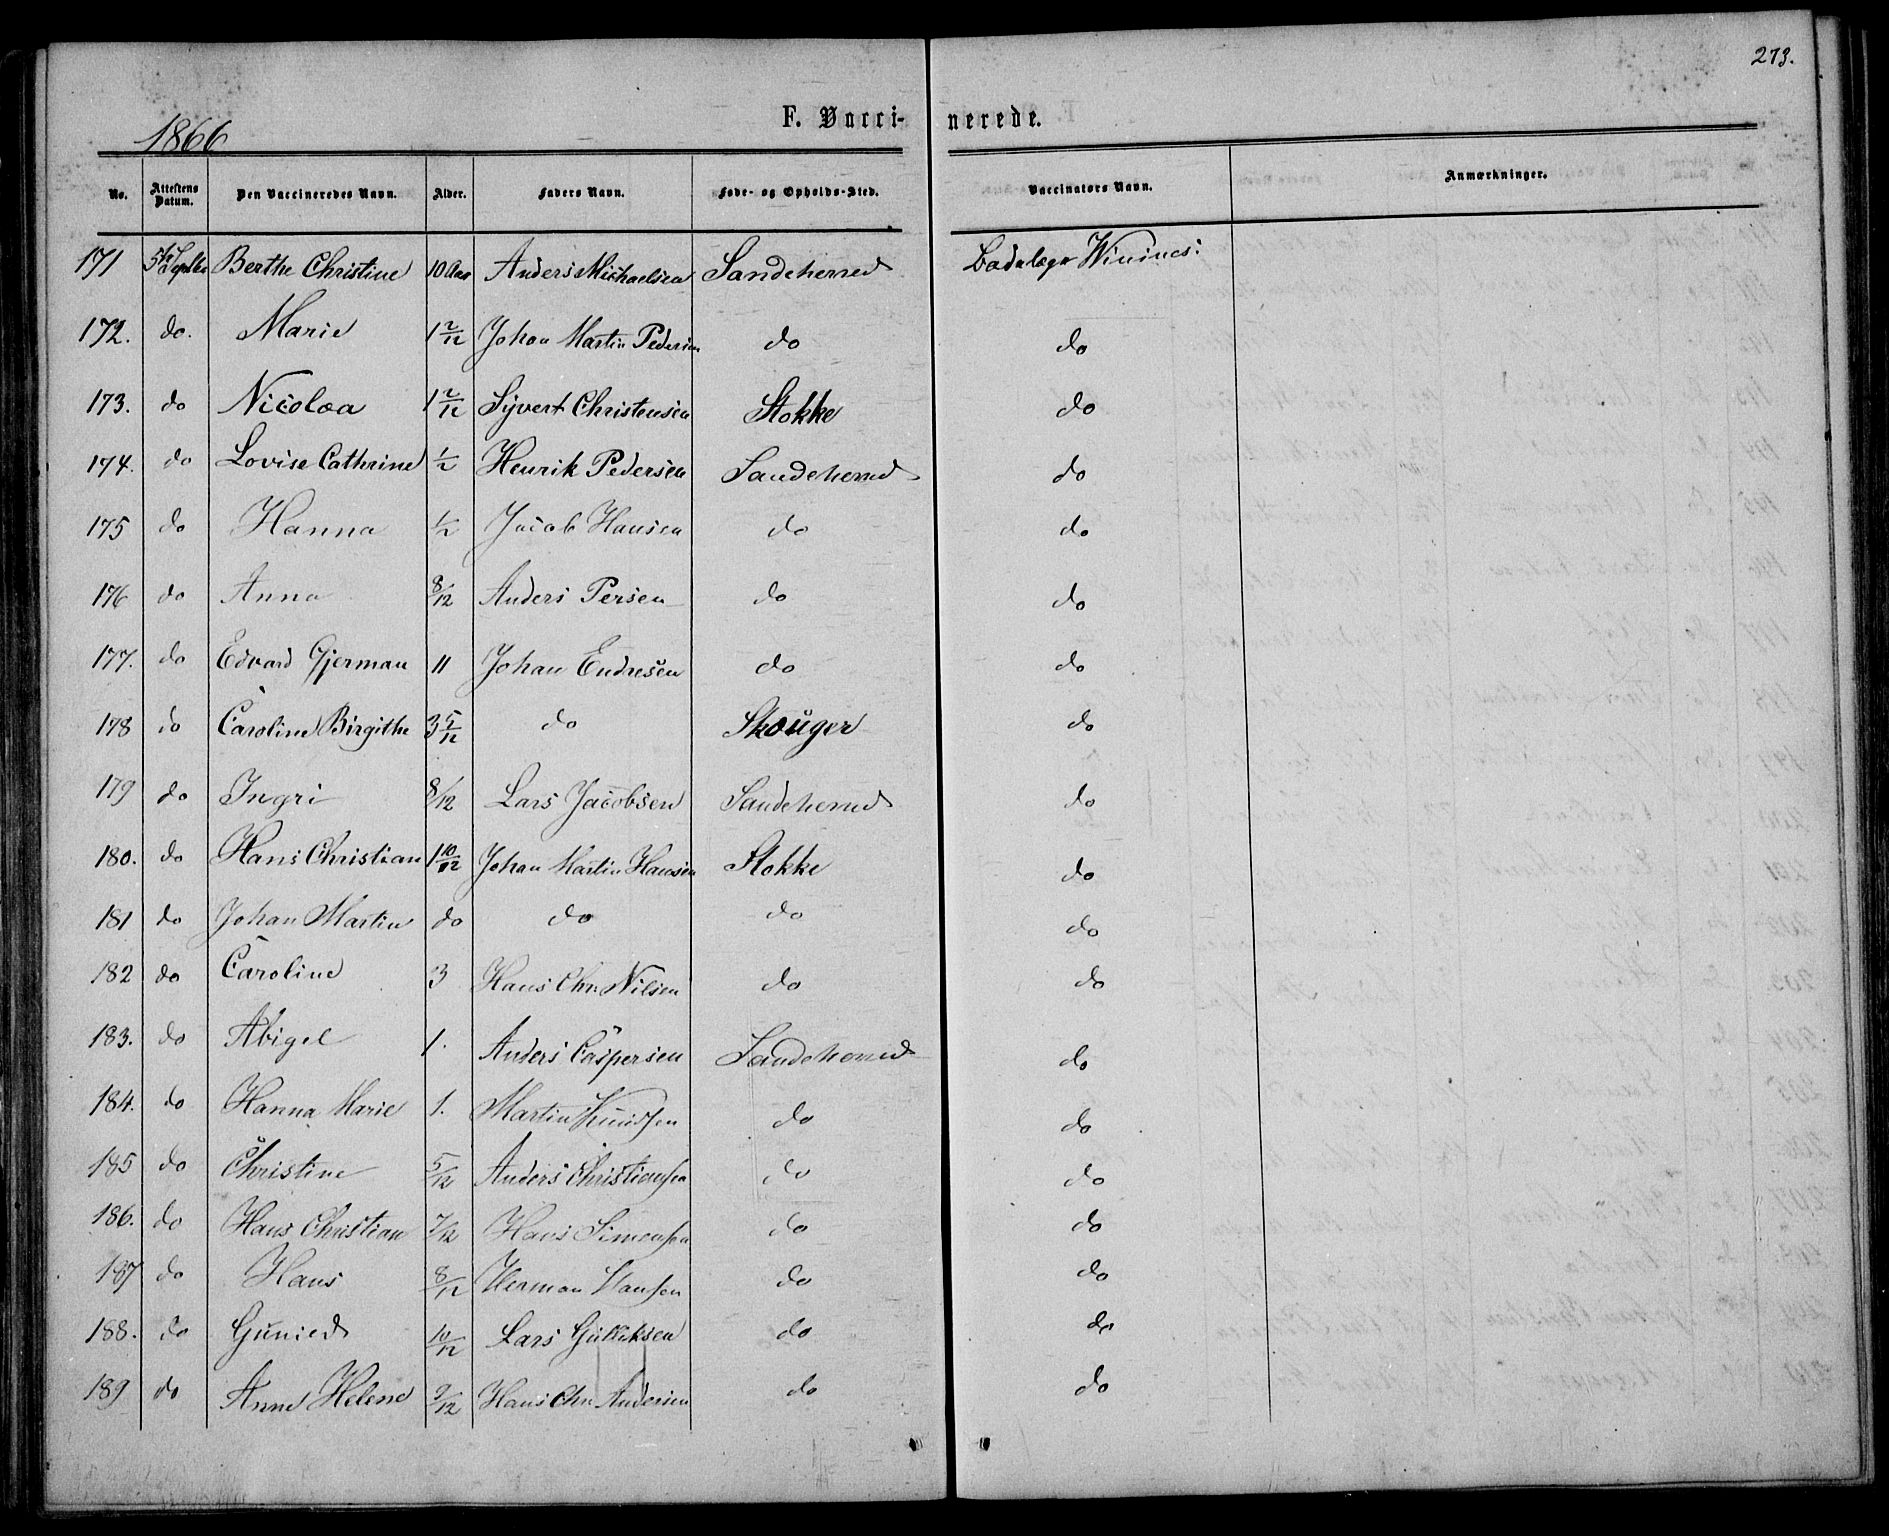 273.
1866
F. Vacci- nerede.
No. Attestens Datum. Den Vaccineredes Navn. Alder. Faders Navn. Føde- og Opholds-Sted. Vaccinators Navn. Anmærkninger.
171 5te Septbr Berthe Christine 10 Aar Anders Michaelsen Sandeherred Badelæge
172. do. Marie 1 2/12 Johan Martin Pedersen do do
173. do Nicolea 1 2/12 Syvert Christensen Stokke do
174. do Lovise Cathrine 1/2 Henrik Pedersen Sandeherred do
175 do Hanna 1/2 Jacob Hansen do do
176 do Anna 8/12 Anders Persen do do
177. do Edvard Gjerman 11 Johan Endresen do do
178 do Caroline Birgithe 3 5/12 do Skouger do
179 do Ingri 8/12 Lars Jacobsen Sandeherred do
180. do Hans Christian 1 10/12 Johan Martin Hansen Stokke do
181 do Johan Martin do do do do
182 do Caroline 3 Hans Chr. Nilsen do do
183. do Abigel 1. Anders Caspersen Sandeherred do
184. do Hanna Marie 1. Martin Knudsen do do
185 do Christine 5/12 Anders Christiansen do do
186. do Hans Christian 7/12 Hans Simonsen do do
187 do Hans 8/12 Herman Hansen do do
188. do Gunild 10/12 Lars Gulliksen do do
189 do Anne Helene 9/12 Hans Chr. Andersen do do